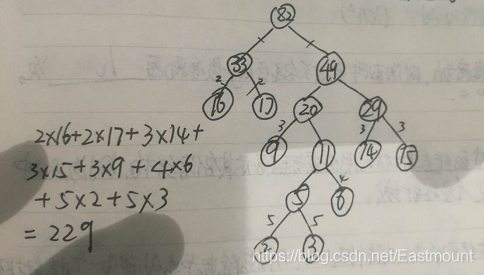 82
33
49
2
2
16
17
20
29
3
3
3
9
11
14
15
4
5
6
5
5
2
3
2×16+2×17+3×14+
3×15+3×9+4×6
+5×2+5×3
=229
https://blog.csdn.net/Eastmount